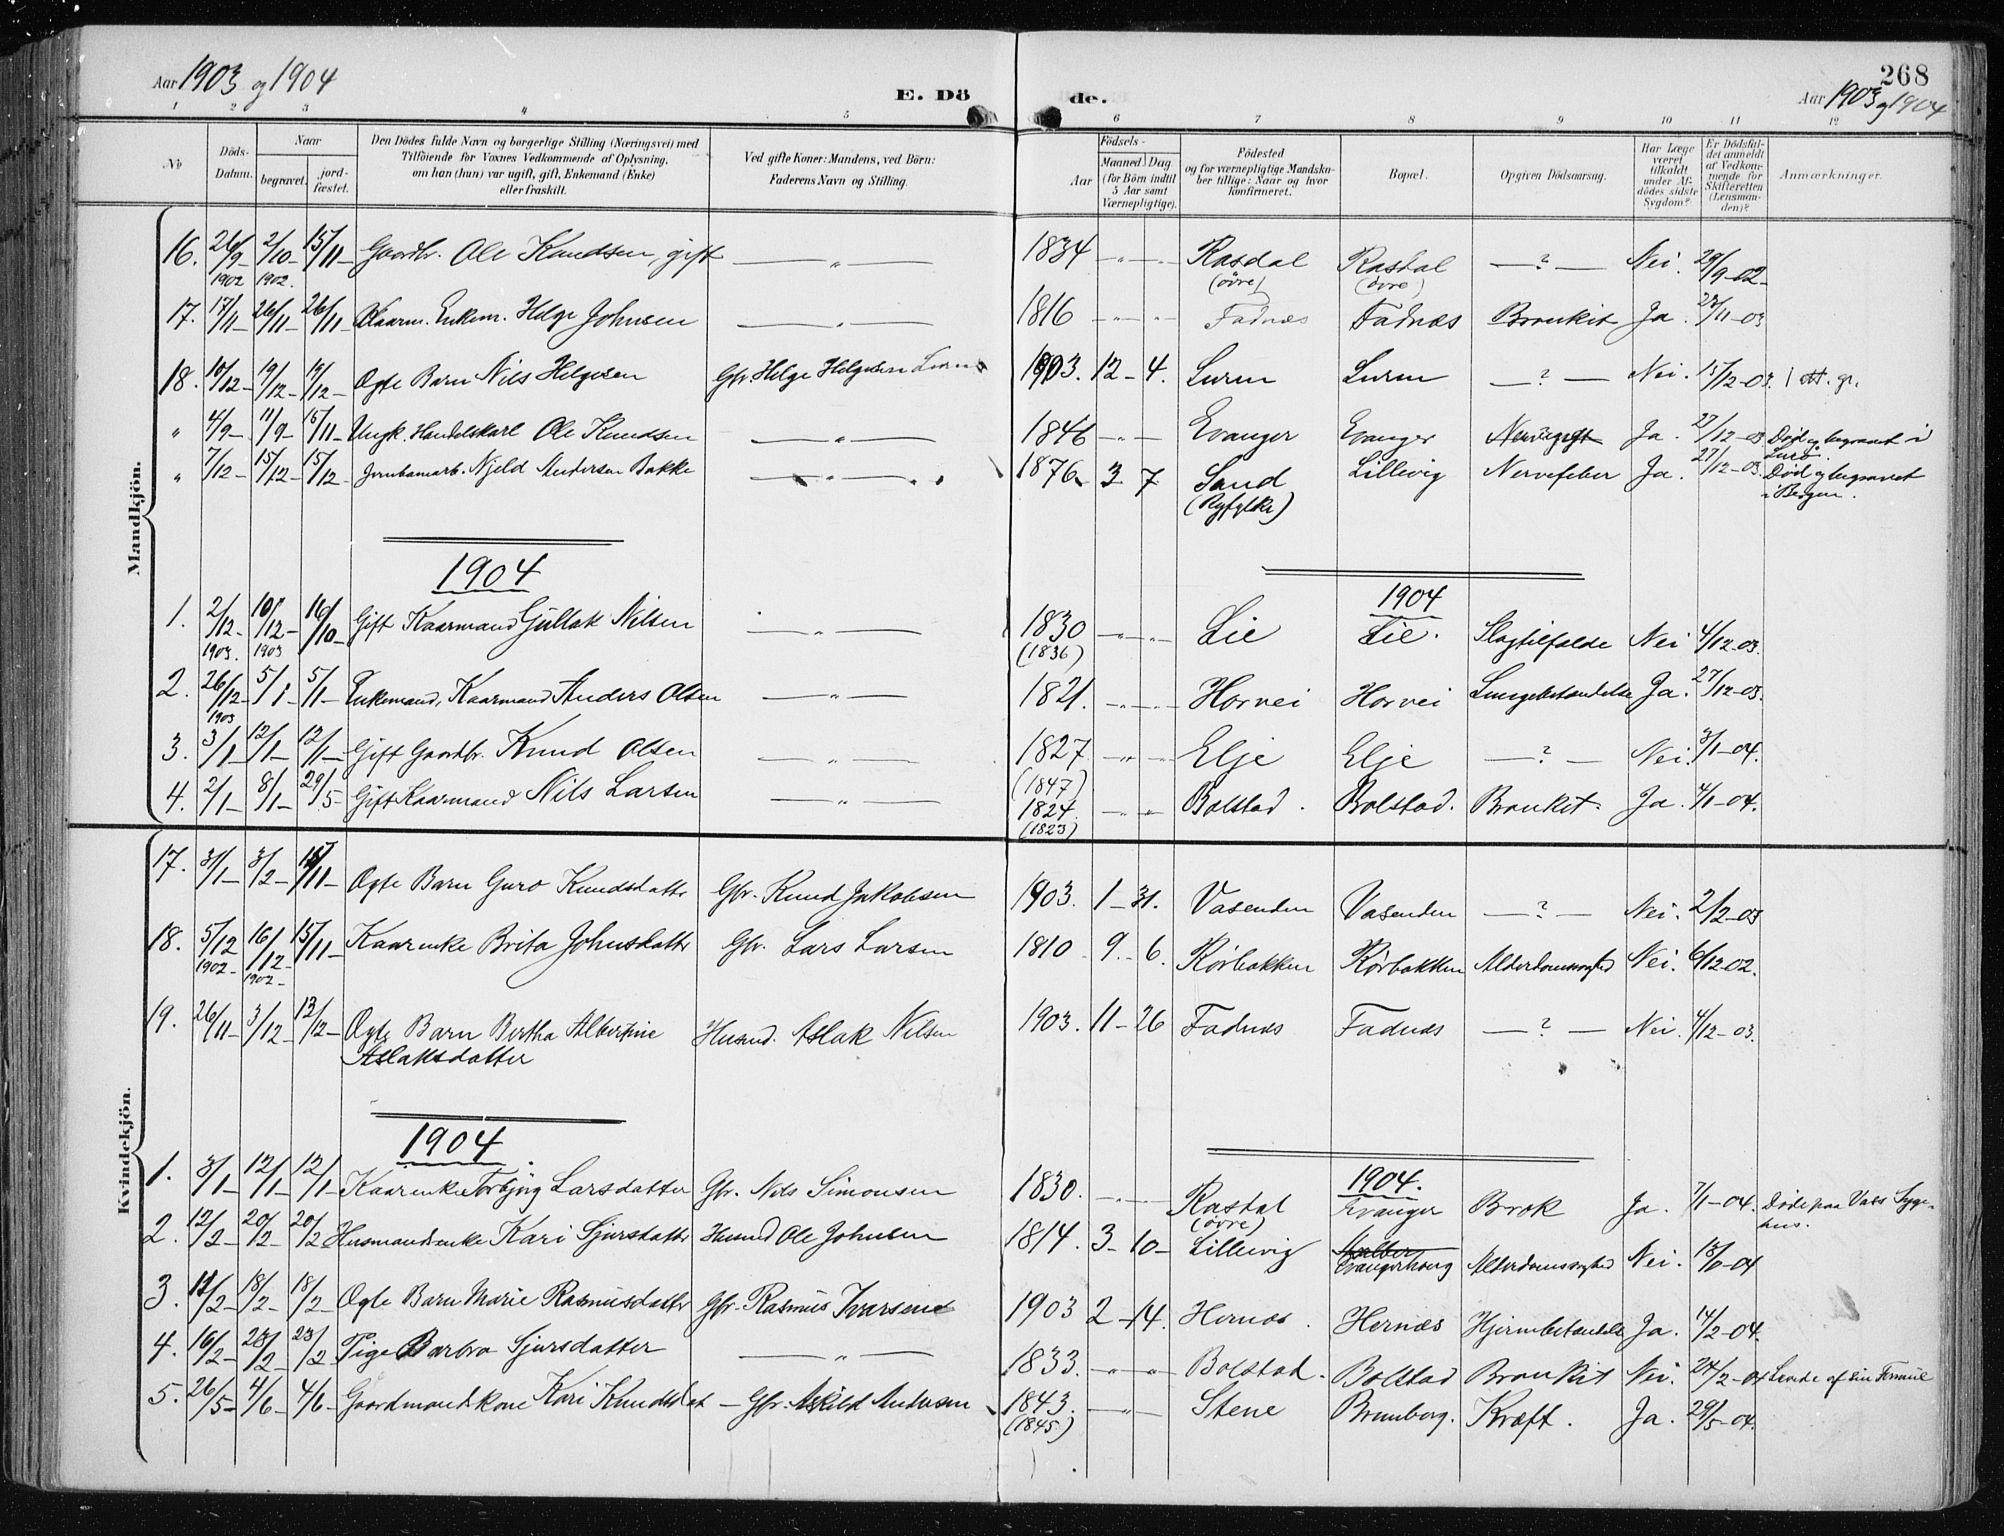 268
Aar 1903 og 1904
E. Döde.
Aar 1903 og 1904
1 2 3 4 5 6 7 8 9 10 11 12
No
Döds-Datum.
Naar
begravet.
jordfæstet.
Den Dödes fulde Navn og borgerlige Stilling (Næringsvei) med
Tilföiende for Voxnes Vedkommende af Oplysning,
om han (hun) var ugift, gift, Enkemand (Enke)
eller fraskilt.
Ved gifte Koner: Mandens, ved Börn:
Faderens Navn og Stilling.
Födsels-
Aar
Maaned Dag
(for Börn indtil
5 Aar samt
Værnepligtige).
Födested
og for værnepligtige Mandskaber tillige: Naar og hvor
konfirmeret.
Bopæl.
Opgiven Dödsaarsag.
Har Læge været tilkaldt under Afdödes sidste Sygdom?
Er Dödsfaldet anmeldt af Vedkommende for Skifteretten (Lensmanden)?
Anmærkninger.
Mandkjön.
16. 26/9 1902 2/10 1902. 15/11 Gaardbr. Ole Knudsen, gift — „ — 1834 — „ — Rasdal (övre) Rasdal (övre) — ? — Nei. 29/9-02
17. 17/11 26/11 26/11 Kaarm. Enkem. Helge Johnsen — „ — 1816 — „ — Fadnæs Fadnæs Bronkit Ja. 23/11-03
18. 10/12 19/12 19/12 Ægte Barn Nils Helgesen Gbr. Helge Helgesen 1903. 12 - 4. — ? — Nei. 15/12-03.
„ 4/9 11/9 15/11 Ungk. Handelskarl Ole Knudsen — „ — 1846 — „ — Evanger Evanger Ja. 27/12-03 Död og begravet i
„ 7/12 15/12 15/12 Jernbanearb. Njeld Andersen Bakke — „ — 1876 3 7 Sand (Ryfylke) Lillevig Nervefeber Ja. 27/12-03. Död og begravet i Bergen.
1904
1904
1. 2/12 1903. 10/12 1903 16/10 Gift Kaarmand Gullak Nilsen — „ — 1830 (1836) — „ — Lie Lie. Slagtilfælde Nei 4/12-03.
2. 26/12 1903 5/1 5/1 Enkemand, Kaarmand Anders Olsen — „ — 1821. — „ — Horvei Horvei Lungebetændelse Ja. 27/12-03.
3. 3/1 12/1 12/1 Gift Gaardbr. Knud Olsen — „ — 1827 (1847) — „ — Elje Elje — ? — Nei. 3/1-04.
4. 2/1 8/1 29/5 Gift Kaarmand Nils Larsen — „ — 1824 (1823) — „ — Bolstad. Bolstad. Bronkit. Ja. 4/1-04.
Kvindekjön.
17. 31/1 3/2 15/11 Ægte Barn Guro Knudsdatter Gbr. Knud Jakobsen 1903. 1 - 31. Vasenden Vasenden — ? — Nei. 2/2-03
18. 5/12 1902 16/12 1902 15/11 Kaarenke Brita Johnsdatter Gbr. Lars Larsen 1810 9. 6. Rörbakken Rörbakken Alderdomssvaghed Nei. 6/12-02.
19. 26/11 3/12 13/12 Ægte Barn Bertha Albertine Aslaksdatter Husmd. Aslak Nilsen 1903. 11 - 26 Fadnæs Fadnæs — ? — Nei. 4/12-03.
1904
1904.
1. 3/1 12/1 12/1 Kaarenke Torbjörg Larsdatter Gbr. Nils Simonsen 1830. — „ — Rasdal (övre) Evanger Brok Ja. 7/1-04. Döde paa Voss Sygehus.
2. 12/2 20/2 20/2 Husmandsenke Kari Sjursdatter Husmd Ole Johnsen 1814. 3 - 10 Lillevig Alderdomssvaghed Nei.
3. 12/2 18/2 18/2 Ægte Barn Marie Rasmusdatter Gbr. Rasmus Ivarsen 1903 2 - 14. Hernæs. Hernæs Hjernebetændelse Ja. 14/2-04.
4. 16/2 23/2 23/2 Pige Barbro Sjursdatter — „ — 1833. — „ — Bolstad. Bolstad Bronkit Nei. 24/2-04 Levede af sin Formue
5. 26/5 4/6 4/6 Gaardmandskone Kari Knudsdat — Gbr. Askild Andersen 1843. (1845) — „ — Stene Brunborg. Kræft. Ja. 29/5-04.